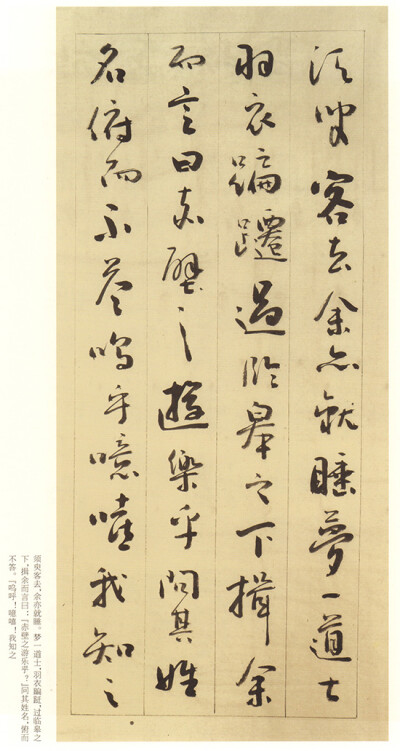 須臾客去余亦就睡夢一道士
羽衣蹁躚過臨皋之下揖余
而言曰赤壁之遊樂乎問其姓
名俯而不答嗚呼噫嘻我知之
须臾客去，余亦就睡。梦一道士，羽衣蹁跹，过临皋之
下，揖余而言曰：『赤壁之游乐乎？』问其姓名，俯而
不答。『呜呼！噫嘻！我知之